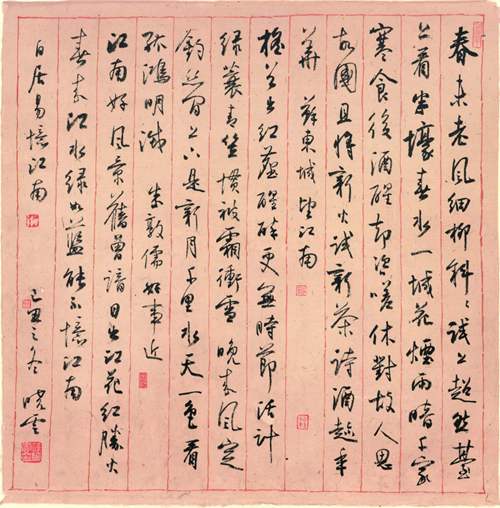 春未老風細柳斜々試上超然臺
上看半壕春水一城花煙雨暗千家
寒食後酒醒却咨嗟休對故人思
故國且將新火試新茶詩酒趁年
華 蘇東坡望江南
搖首出紅塵醒醉更無時節活計
綠蓑青笠慣被霜衝雪晚來風定
釣絲閒上下是新月千里水天一色看
孤鴻明滅 朱敦儒好事近
江南好風景舊曾諳日出江花紅勝火
春來江水綠如藍能不憶江南
白居易憶江南
己丑之冬 曉雲